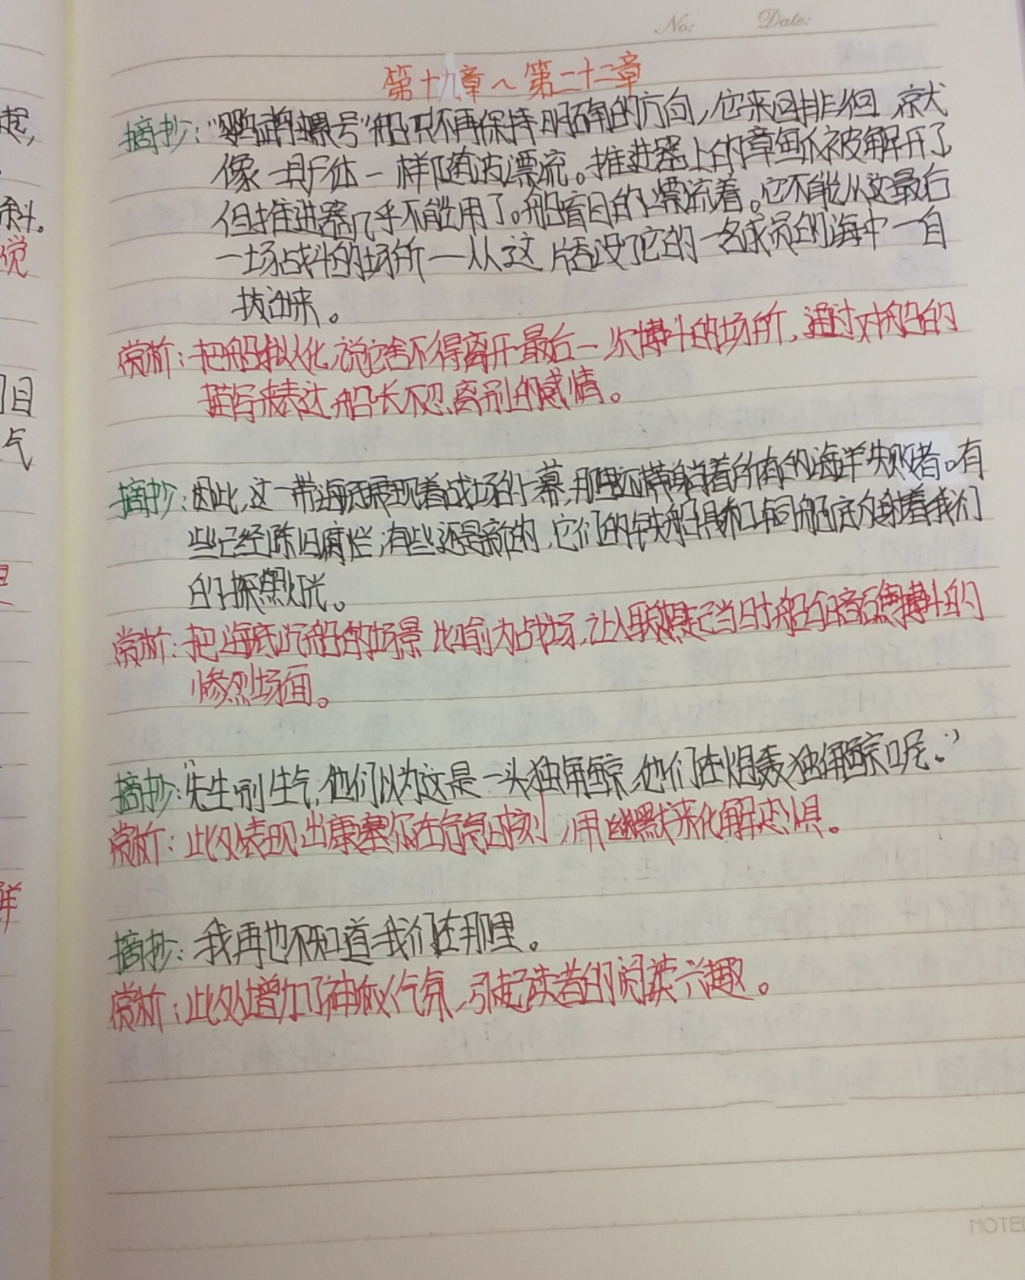 No: Date:
第十九章～第二十二章
摘抄："鹦鹉螺号"船只不再保持明确的方向，它来回徘徊，就
像一具尸体一样随波漂流。推进器上的章鱼爪被解开了
但推进器几乎不能用了。船盲目的漂流着。它不能从这最后
一场战斗的场所—从这片吞没了它的一名家员的海中一自
拔出来。
赏析：把船拟人化，说它舍不得离开最后一次搏斗的场所，通过对船的
描写来表达船长不忍离别的感情。
摘抄：因此，这一带海底展现着战场的一幕，那里还躺着所有的海洋失败者。有
些已经陈旧腐烂，有些还是新的，它们的铁船具和铜船底反射着我们
的探照灯光。
赏析：把海底沉船的场景比喻为战场，让人联想起当时船船暗礁搏斗的
惨烈场面。
摘抄："先生别生气，他们以为这是一头独角鲸，他们在炮轰独角鲸呢。"
赏析：此处表现出康塞尔在危急时刻，用幽默来化解恐惧。
摘抄：我再也不知道我们在那里。
赏析：此处增加了神秘气氛，引起读者的阅读兴趣。
起，
斜。
觉
们目
气
样
NOTE